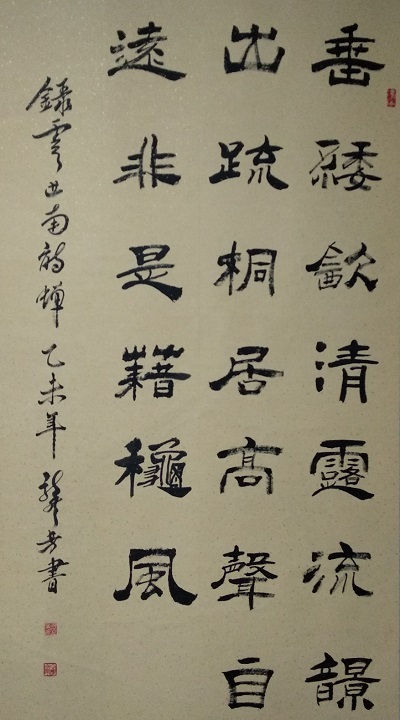 垂緌飲清露流響
出疏桐居高聲自
遠非是藉龝風
錄虞世南詩蟬 乙未年 書